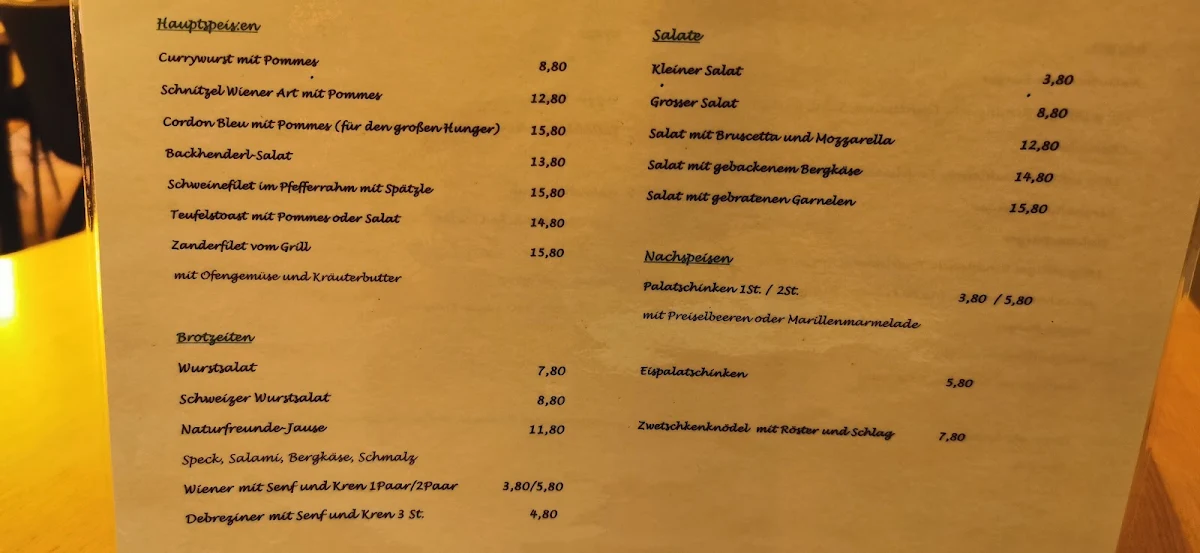 Hauptspeisen
Currywurst mit Pommes 8,80
Schnitzel Wiener Art mit Pommes 12,80
Cordon Bleu mit Pommes (für den großen Hunger) 15,80
Backhenderl-Salat 13,80
Schweinefilet im Pfefferrahm mit Spätzle 15,80
Teufelstoast mit Pommes oder Salat 14,80
Zanderfilet vom Grill 15,80
mit Ofengemüse und Kräuterbutter
Brotzeiten
Wurstsalat 7,80
Schweizer Wurstsalat 8,80
Naturfreunde-Jause 11,80
Speck, Salami, Bergkäse, Schmalz
Wiener mit Senf und Kren 1Paar/2Paar 3,80/5,80
Debreziner mit Senf und Kren 3 St. 4,80
Salate
Kleiner Salat 3,80
Grosser Salat 8,80
Salat mit Bruscetta und Mozzarella 12,80
Salat mit gebackenem Bergkäse 14,80
Salat mit gebratenen Garnelen 15,80
Nachspeisen
Palatschinken 1St. / 2St. 3,80 / 5,80
mit Preiselbeeren oder Marillenmarmelade
Eispalatschinken 5,80
Zwetschkenknödel mit Röster und Schlag 7,80